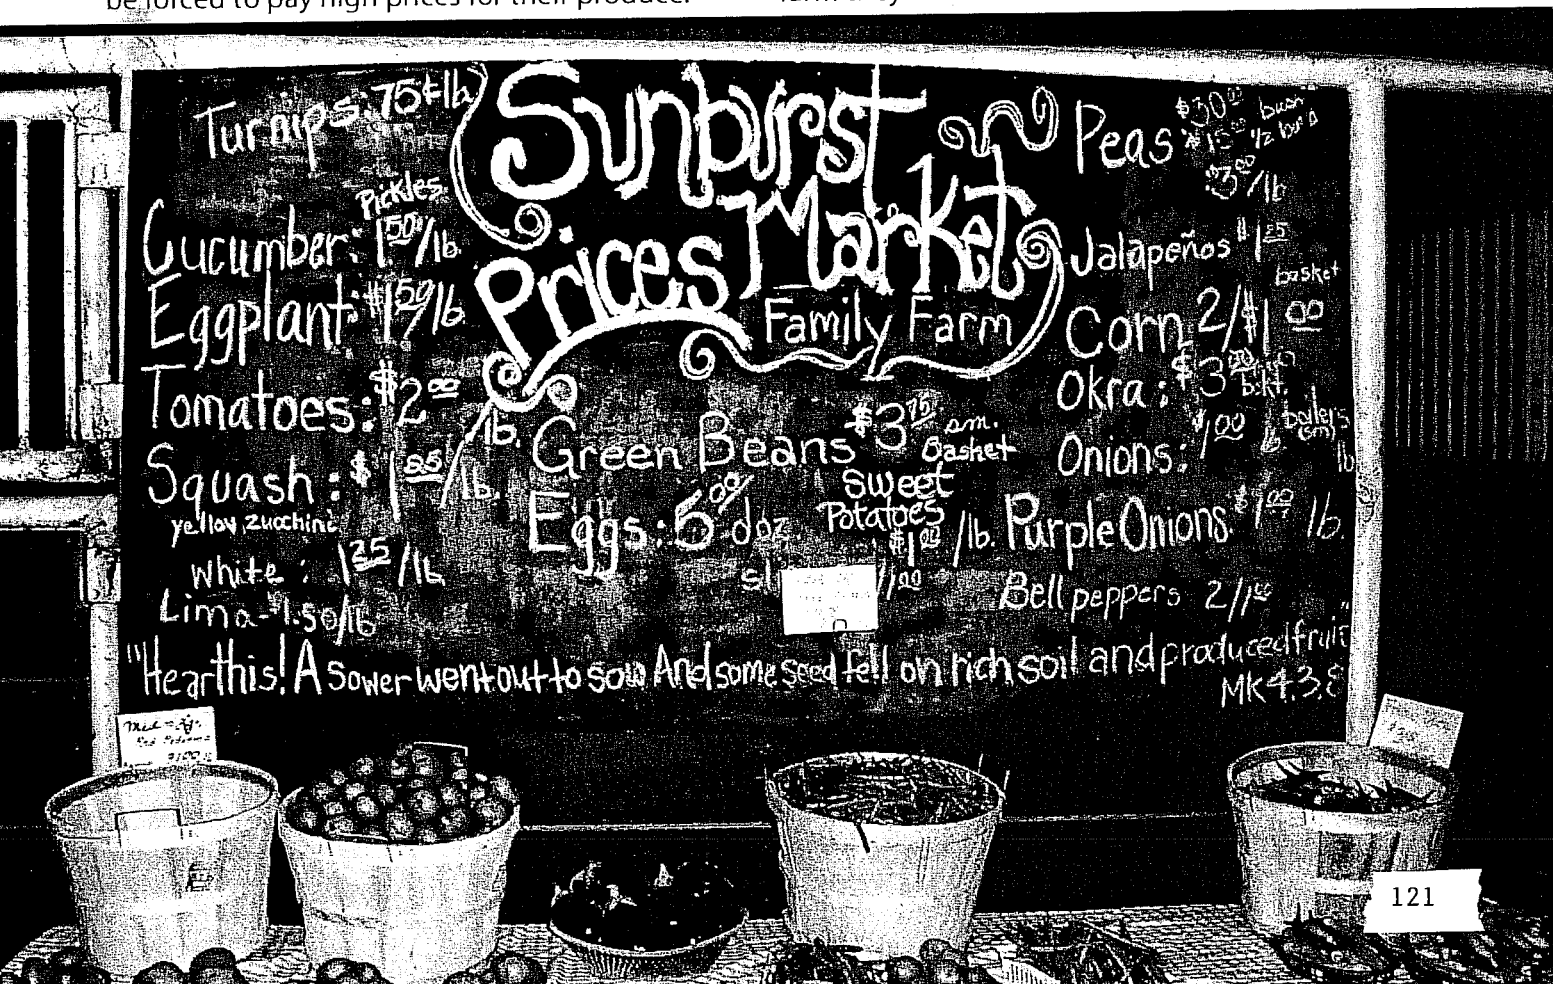 be forced to pay high prices for their produce.
Turnips: 75¢ lb.
Pickles.
Cucumber: 1 50/lb.
Eggplant: $1 50/lb
Tomatoes: $2 00
/lb.
Squash: $1 25/lb.
yellow, zucchini
white: 1 25/lb
Lima - 1.50/lb
Sunburst
Market
Prices
Family Farm
Green Beans $3 75 sm.
Basket
Eggs: 5 00 doz.
Sweet
Potatoes
$1 00/lb.
1 00
Peas $30 00
$15 00 1/2
$3 00/lb
Jalapeños $1 25
basket
Corn 2/$1 00
Okra: $3 00 bskt.
Onions: $1 00 lb boilers
(sm)
lb
Purple Onions $1 00 lb.
Bell peppers 2/1 00
"Hear this! A sower went out to sow And some seed fell on rich soil and produced fruit"
MK 4:3,8
121